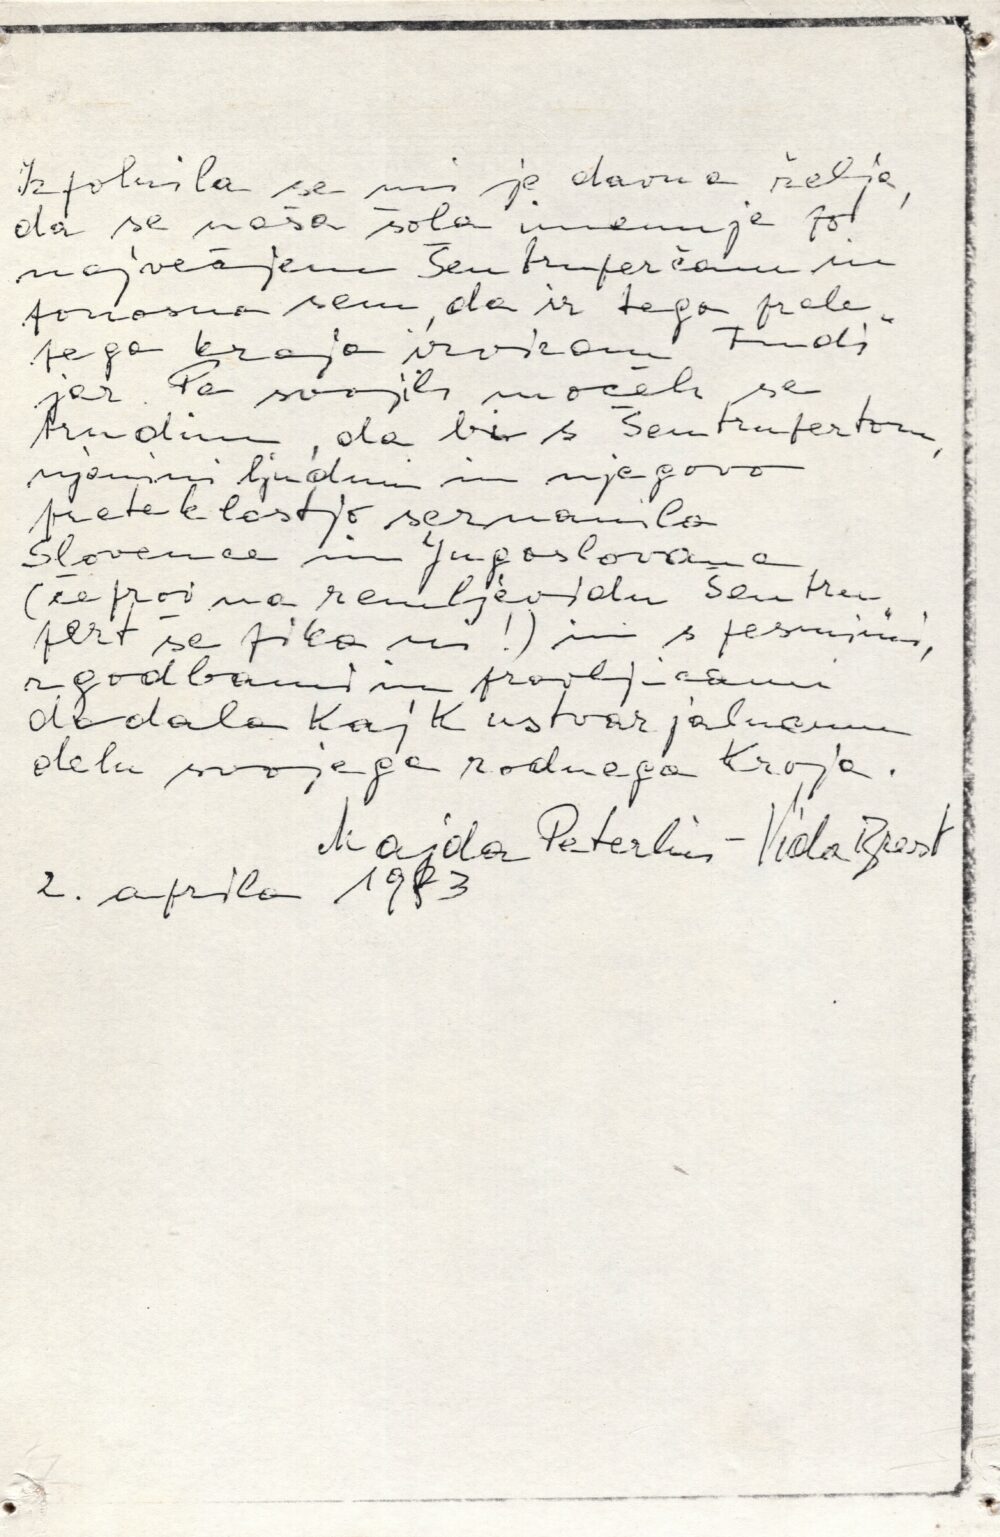 Izpolnila se mi je davna želja,
da se naša šola imenuje po
največjem Šentruperčanu in
ponosna sem, da iz tega prele-
pega kraja izviram tudi
jaz. Po svojih močeh se
trudim, da bi s Šentrupertom,
njenimi ljudmi in njegovo
preteklostjo seznanila
Slovence in Jugoslovane
(čeprav na zemljevidu Šentru
pert še pika ni!) in s pesmimi,
zgodbami in pravljicami
dodala kaj k ustvarjalnemu
delu svojega rodnega kraja.
Majda Peterlin - Vida Brest
2. aprila 1983